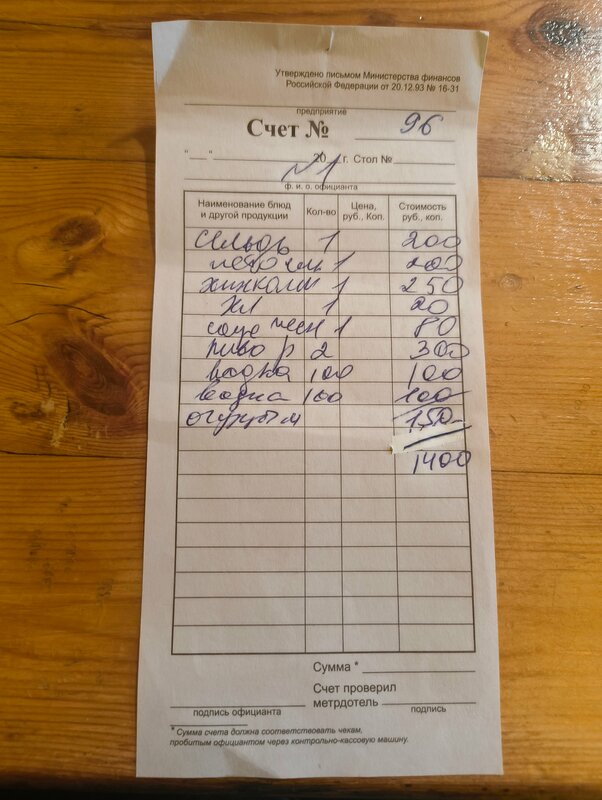 Утверждено письмом Министерства финансов
Российской Федерации от 20.12.93 № 16-31
предприятие
Счет № 96
"___" 20 г. Стол №
№1
ф. и. о. официанта
Наименование блюд и другой продукции Кол-во Цена, руб., Коп. Стоимость руб., коп.
Сельдь 1 200
1 200
хинкали 1 250
хл 1 20
соус чесн 1 80
пиво р 2 300
водка 100 100
водка 100 100
огурцы м 150
1400
Сумма *
Счет проверил
метрдотель
подпись официанта подпись
* Сумма счета должна соответствовать чекам,
пробитым официантом через контрольно-кассовую машину.